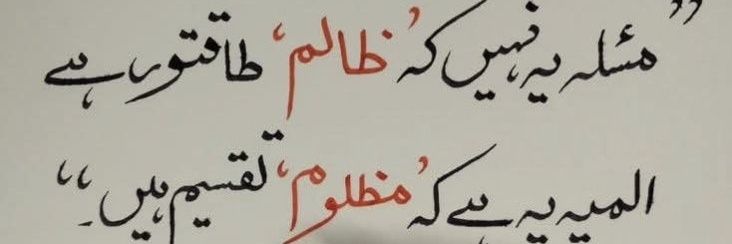 ”مسئلہ یہ نہیں کہ ’ظالم‘ طاقتور ہے
المیہ یہ ہے کہ ’مظلوم‘ تقسیم ہیں۔“